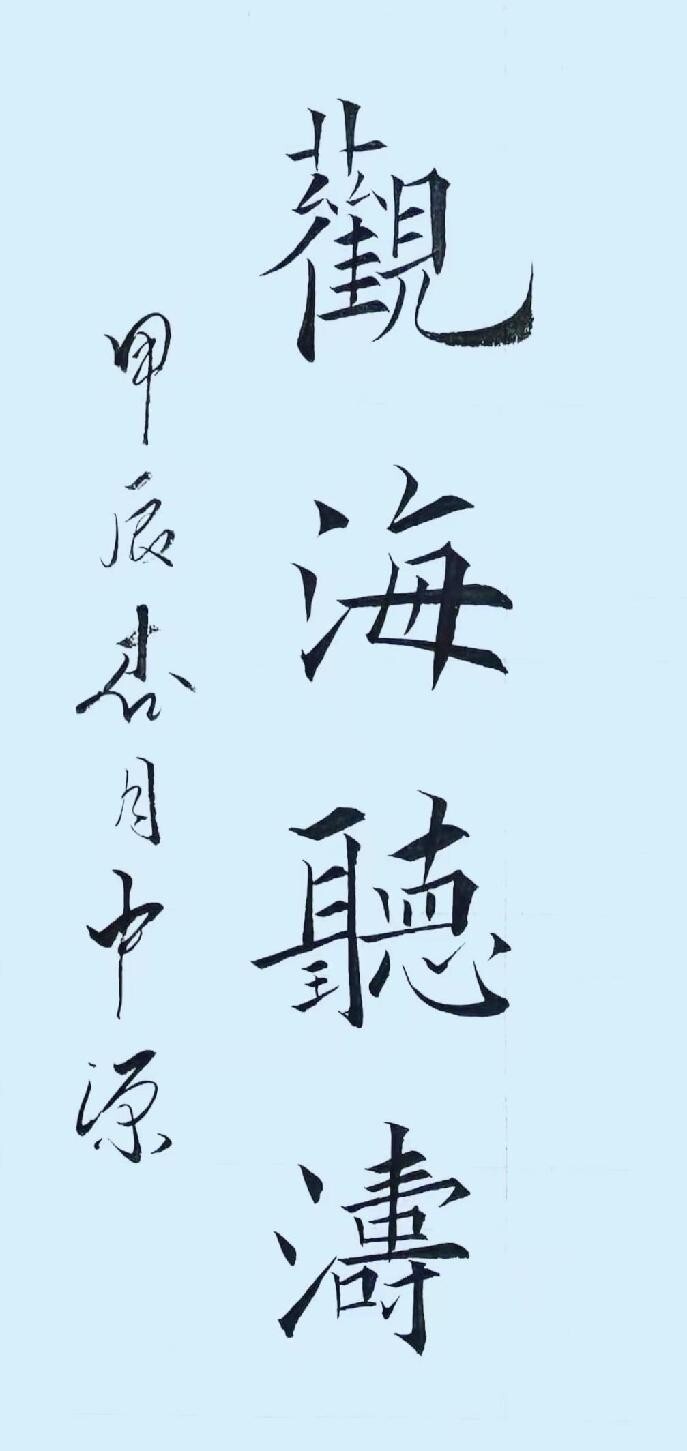 觀海聽濤
甲辰杏月中源